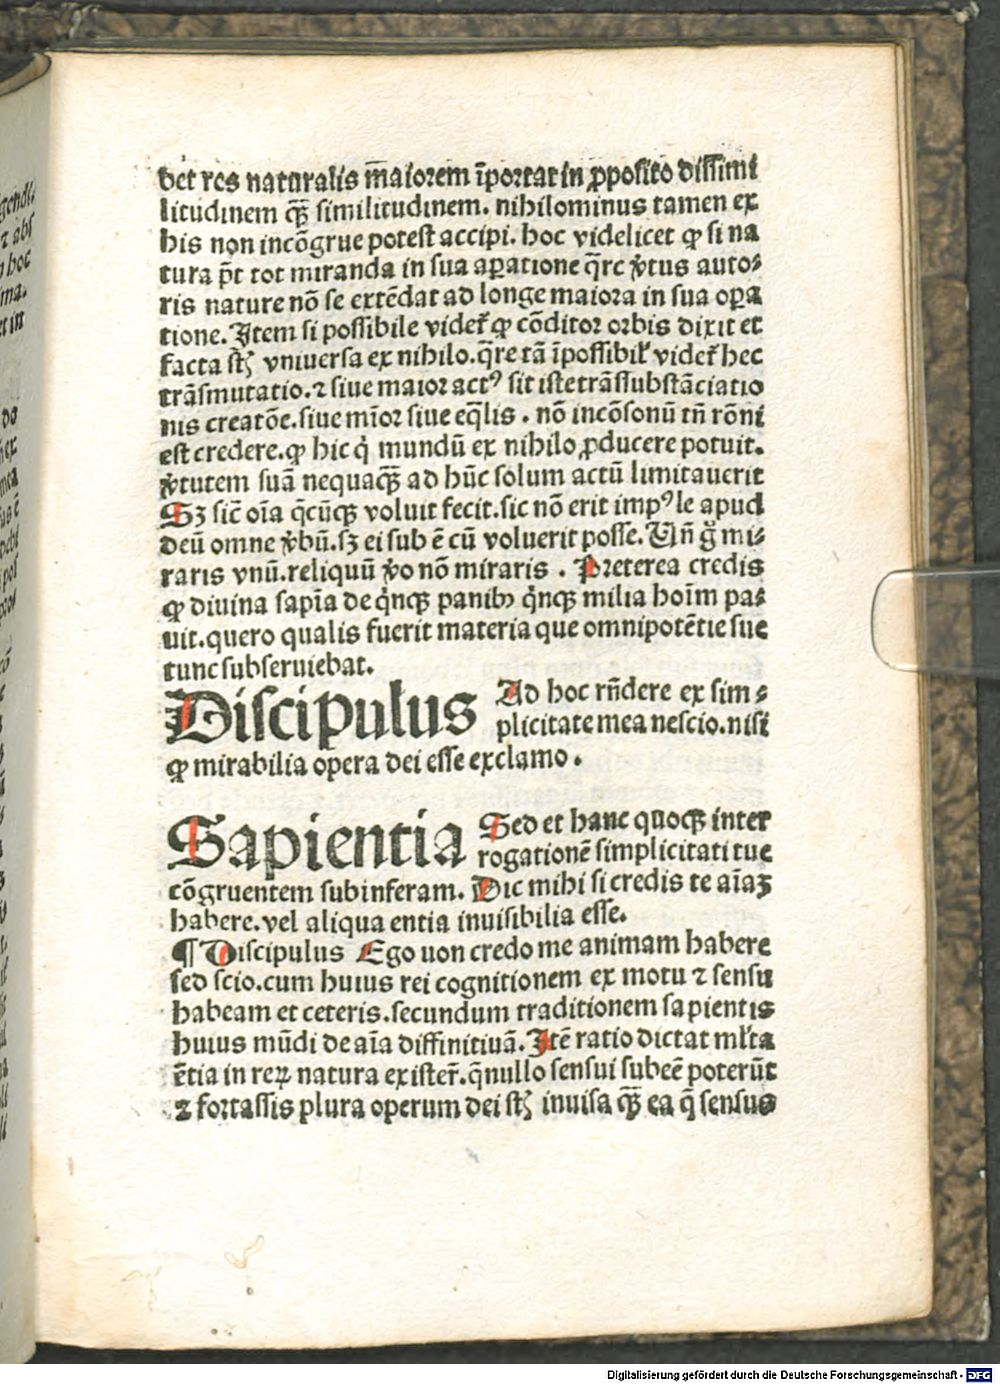 bet res naturalis m̄aiorem īportat in ꝓposito dissimi
litudinem qꝫ̄ similitudinem. nihilominus tamen ex
his non incōgrue potest accipi. hoc videlicet ꝙ si na
tura p̄t tot miranda in sua apatione q̄re v̓tus auto⸗
ris nature nō se extēdat ad longe maiora in sua oꝑa
tione. Item si possibile videt̄ ꝙ cōditor orbis dixit et
facta st̄ vniuersa ex nihilo. q̄re tā īpossibil̄ videt̄ hec
trāsmutatio. ⁊ siue maior actꝰ sit iste trāssubstāciatio
nis creatōe. siue mīor siue eq̄lis. nō incōsonū tn̄ rōni
est credere. ꝙ hic q̇ mundū ex nihilo ꝓducere potuit.
v̓tutem suā nequaqꝫ̄ ad hūc solum actū limitauerit
Sꝫ sic̄ oīa q̄cūqꝫ voluit fecit. sic nō erit impꝰle apud
deū omne v̓bū. sꝫ ei sub ē cū voluerit posse. Un̄ g̊ mi⸗
raris vnū. reliquū v̓o nō miraris. Preterea credis
ꝙ diuina sapīa de q̇nqꝫ panibꝰ q̇nqꝫ milia hoīm pa⸗
uit. quero qualis fuerit materia que omnipotētie sue
tunc subseruiebat.
Discipulus Ad hoc rn̄dere ex sim⸗
plicitate mea nescio. nisi
ꝙ mirabilia opera dei esse exclamo.
Sapientia Sed et hanc quoqꝫ inter
rogationē simplicitati tue
cōgruentem subinferam. Dic mihi si credis te aīaꝫ
habere. vel aliqua entia inuisibilia esse.
¶ Discipulus Ego uon credo me animam habere
sed scio. cum huius rei cognitionem ex motu ⁊ sensu
habeam et ceteris. secundum traditionem sapientis
huius mūdi de aīa diffinitiuā. Itē ratio dictat ml̄ta
ētia in reꝝ natura exister̄. q̄ nullo sensui subeē poterūt
⁊ fortassis plura operum dei st̄ inuisa qꝫ̄ ea q̄ sensus
Digitalisierung gefördert durch die Deutsche Forschungsgemeinschaft - DFG